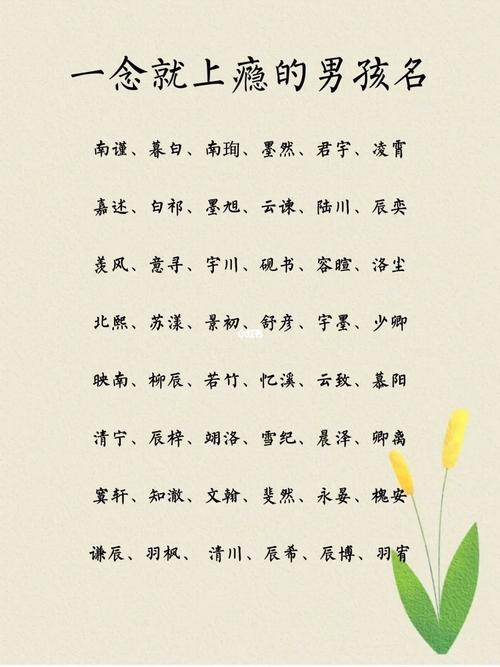 一念就上瘾的男孩名
南谨、暮白、南珣、墨然、君宇、凌霄
嘉述、白祁、墨旭、云谏、陆川、辰奕
羡风、意寻、宇川、砚书、容暄、洛尘
北熙、苏漾、景初、舒彦、宇墨、少卿
小红书
映南、柳辰、若竹、忆溪、云致、慕阳
清宁、辰梓、翊洛、雪纪、晨泽、卿离
寞轩、知澈、文翰、斐然、永晏、槐安
谦辰、羽枫、 清川、辰希、辰博、羽宥